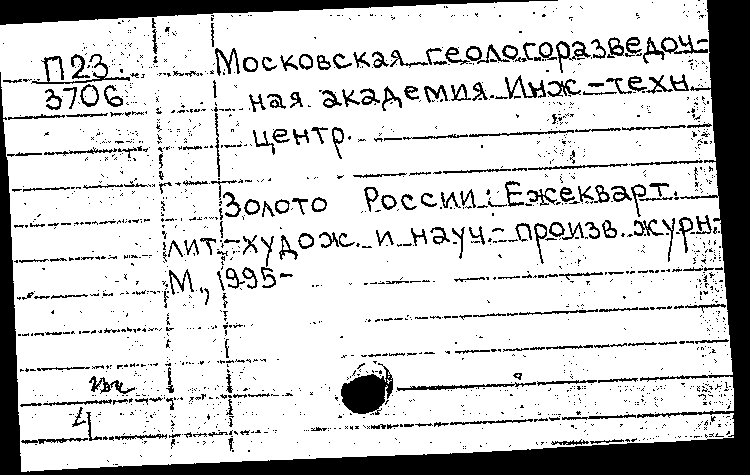 П23.
3706
Московская геологоразведоч-
ная академия. Инж.-техн.
центр.
Золото России: Ежекварт.
лит.-худож. и науч.-произв. журн.-
М., 1995-
4